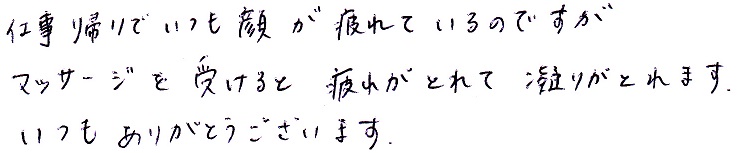 仕事帰りでいつも顔が疲れているのですが
マッサージを受けると疲れがとれて凝りがとれます.
いつもありがとうございます.